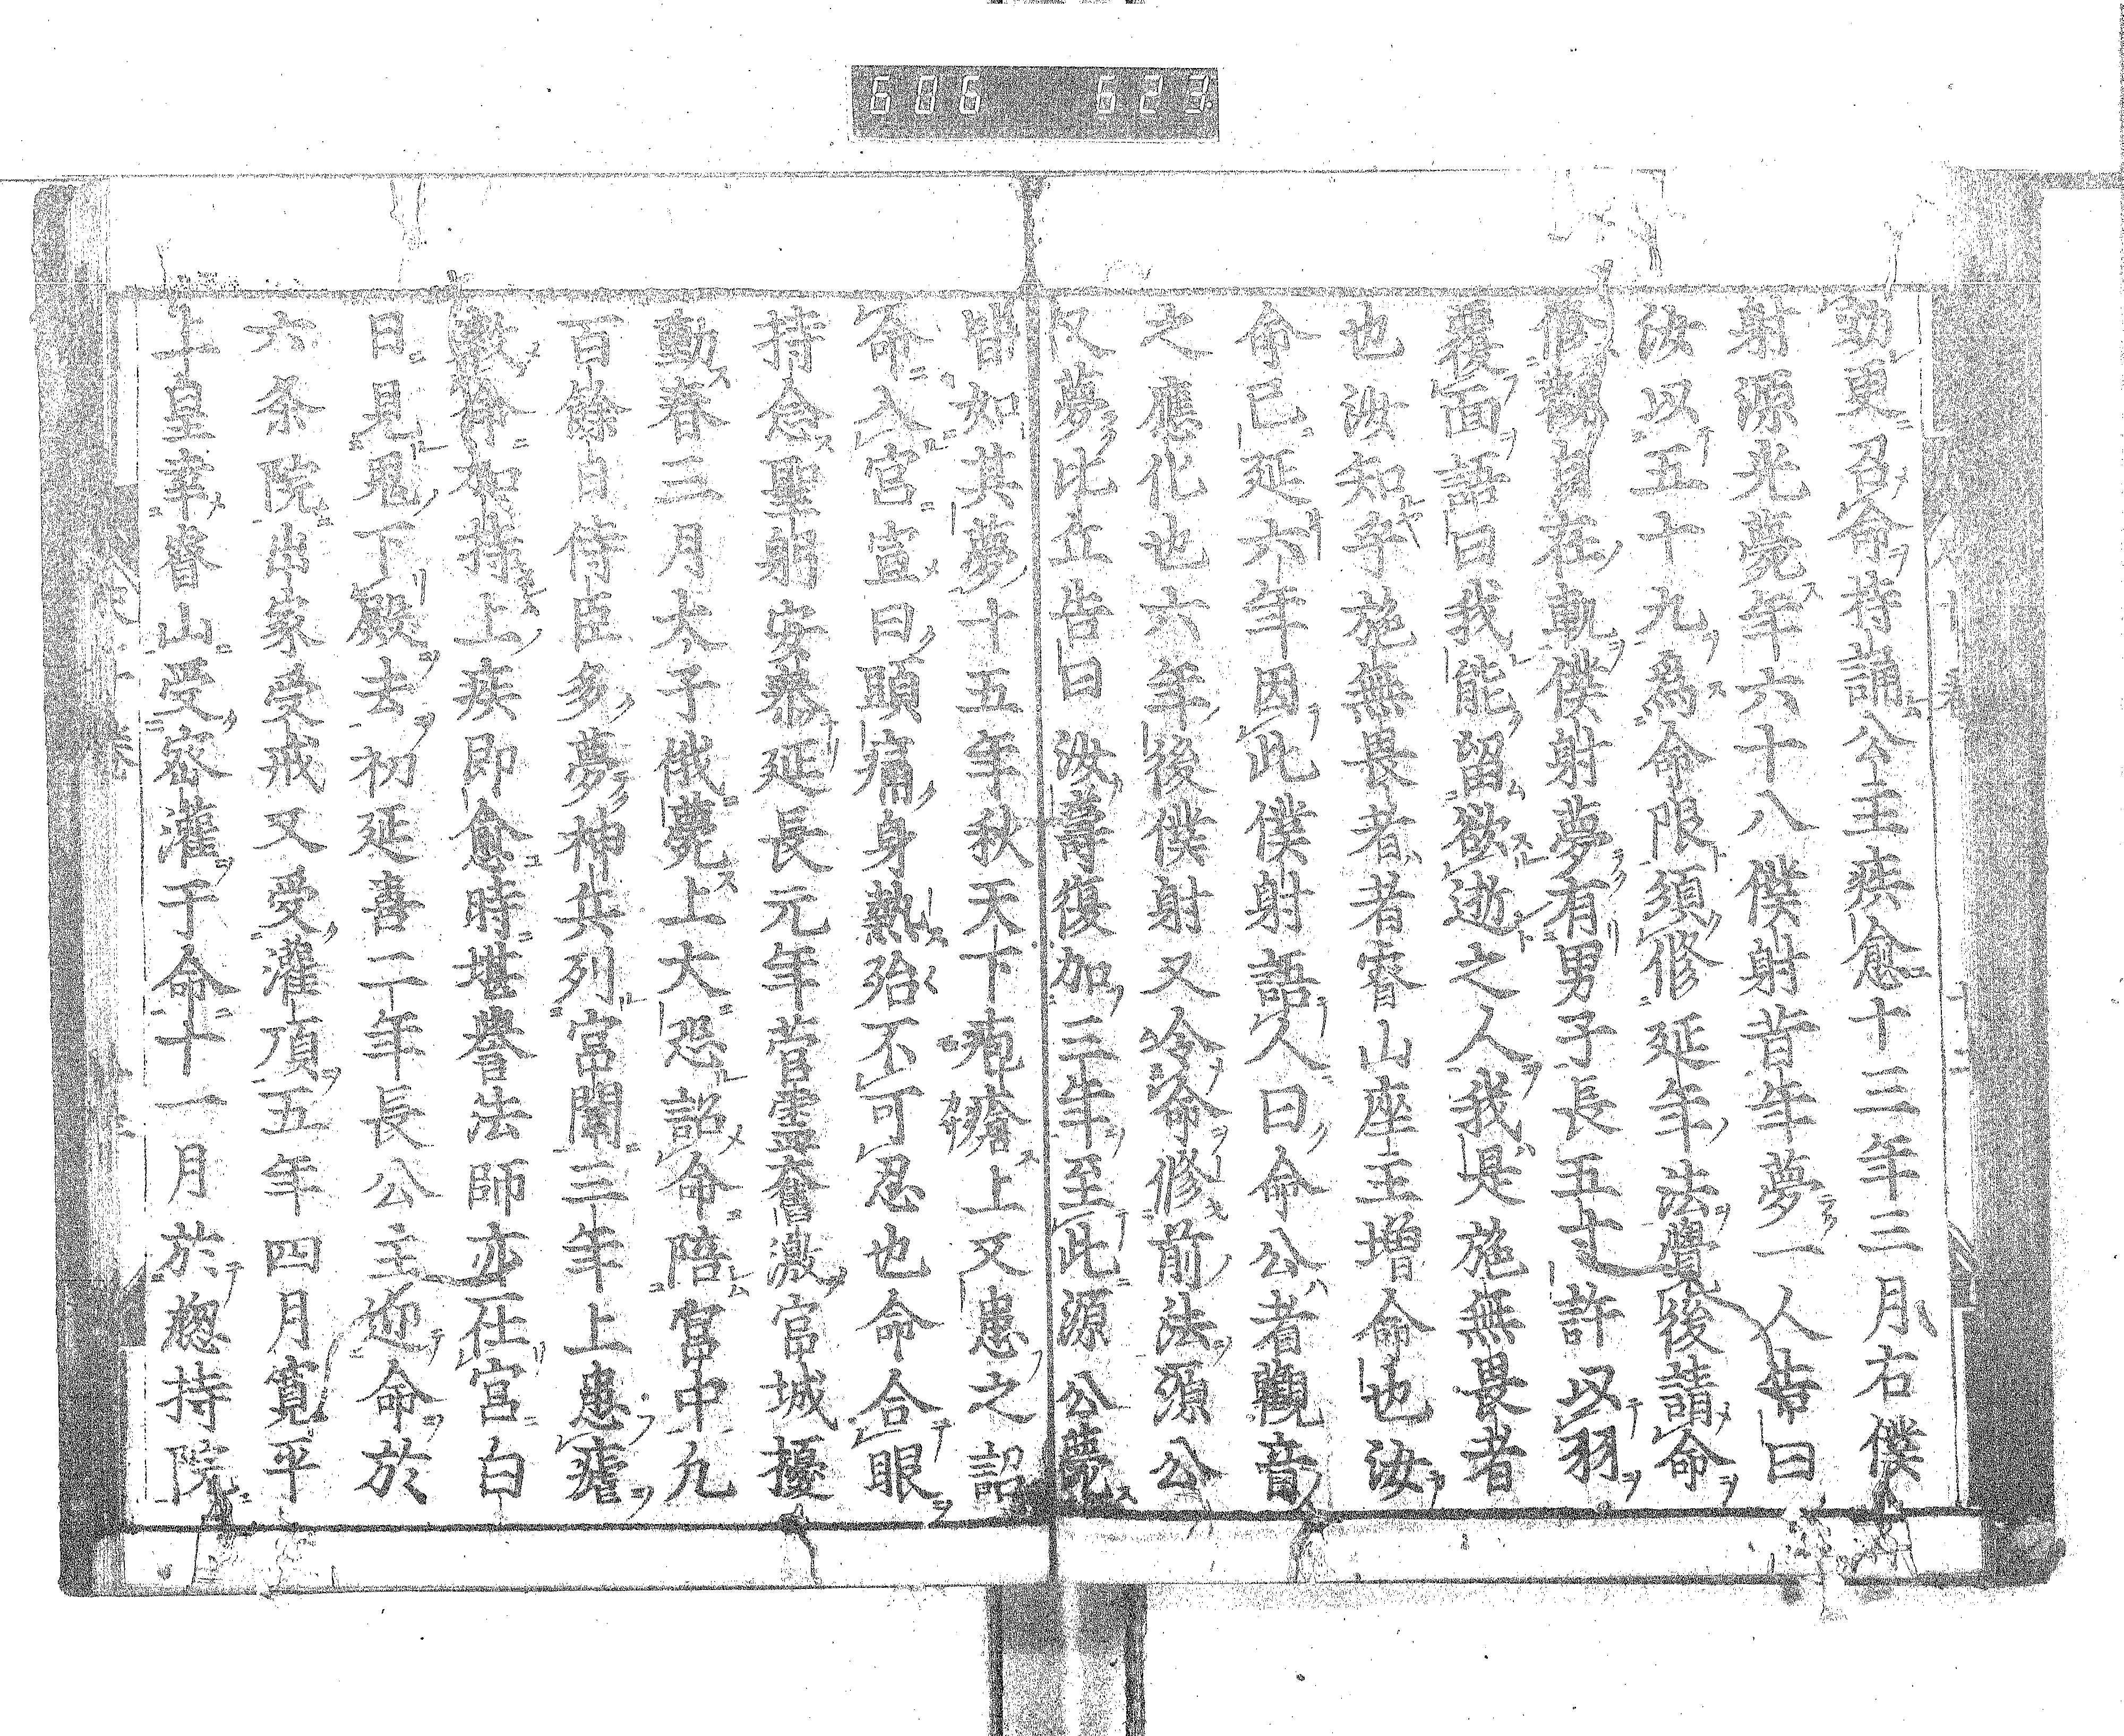 勅更召命持誦公主疾愈十三年三月右僕
射源光薨年六十八僕射昔年夢一人告曰
汝以五十九為命限須修延年法覺後請命
修觀自在軌僕射夢有男子長五丈許以羽
覆面語曰我能留欲逝之人我是施無畏者
也汝知乎施無畏者者睿山座主增命也汝
命已延六年因此僕射語人曰命公者觀音
之應化也六年後僕射又令命修前法源公
又夢比丘告曰汝壽復加三年至此源公薨
皆如其夢十五年秋天下疱瘡上又患之詔
命入宮豈曰頭痛身熱殆不可忍也命合眼
持念聖躬安泰延長元年菅靈奮激宮城擾
動春三月太子俄薨上大恐詔命陪宮中九
百餘日侍臣多夢神兵列宮闈三年上患瘧
敕命加持上疾即愈時堪譽法師亦在宮白
日見鬼下殿去初延喜二年長公主迎命於
六条院出家受戒又受灌頂五年四月寬平
上皇幸睿山受密灌于命十一月於總持院
606 623